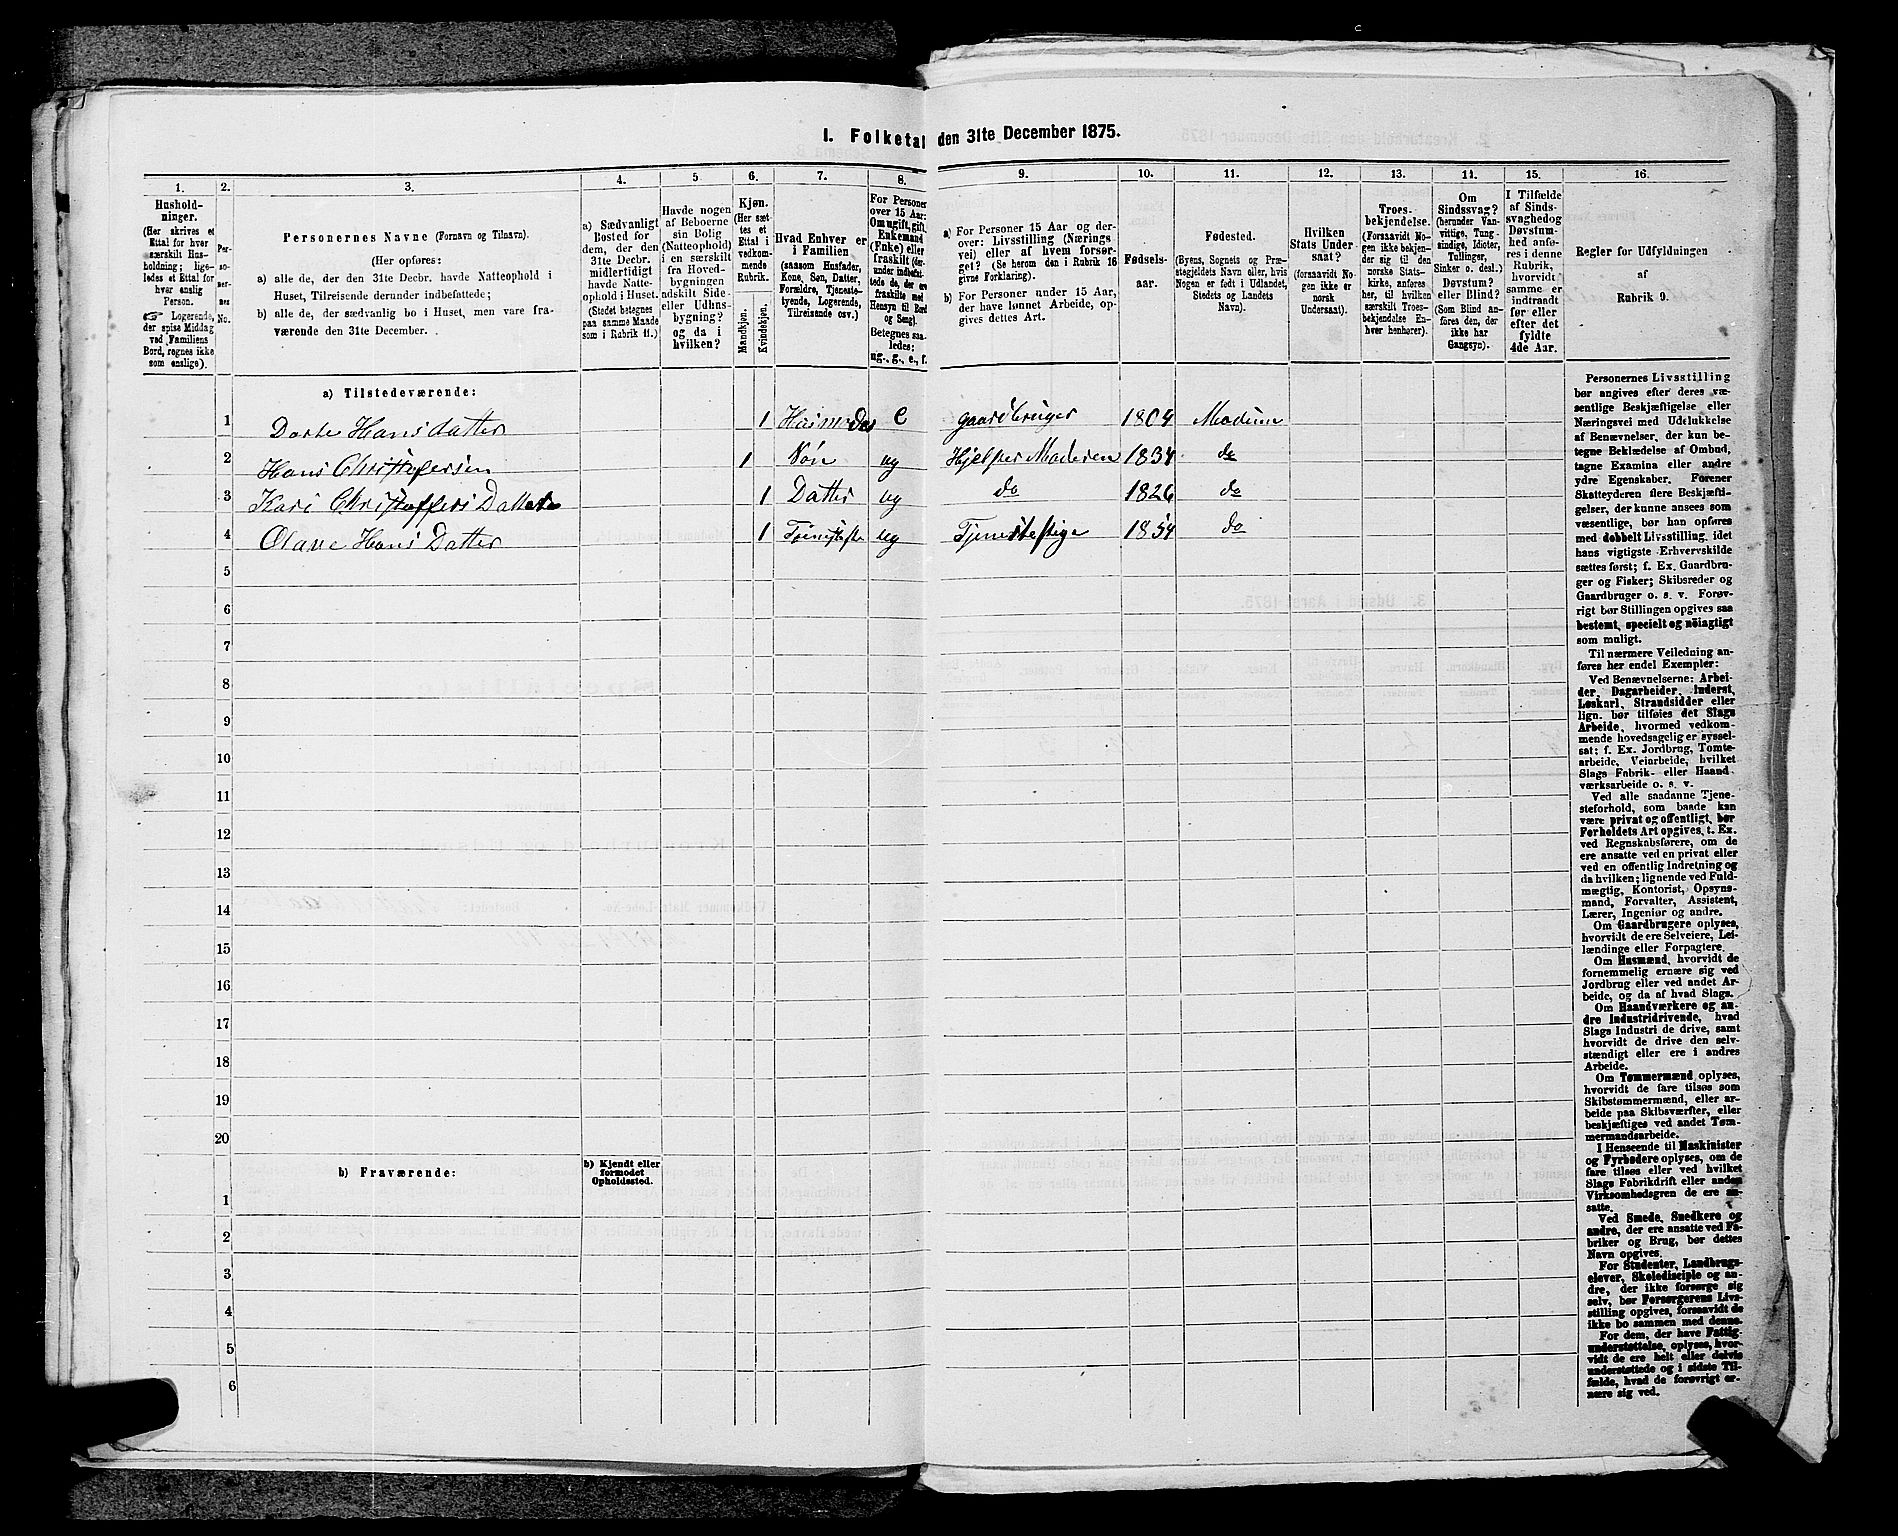 I. Folketal den 31te December 1875.
1.
Hushold-
ninger.
(Her skrives et
Ettal for hver
særskilt Hus-
holdning; lige-
ledes et Ettal for
hver enslig
Person.
☞ Logerende,
der spise Middag
ved Familiens
Bord, regnes ikke
som enslige).
2.
Per-
so-
ner-
nes
No.
3.
Personernes Navne (Fornavn og Tilnavn).
(Her opføres:
a) alle de, der den 31te Decbr. havde Natteophold i
Huset, Tilreisende derunder indbefattede;
b) alle de, der sædvanlig bo i Huset, men vare fra-
værende den 31te December.
4.
a) Sædvanligt
Bosted for
dem, der den
31te Decbr.
midlertidigt
havde Natte-
ophold i Huset.
(Stedet betegnes
paa samme Maade
som i Rubrik 11.)
5
Havde nogen
af Beboerne
sin Bolig
(Natteophold)
i en særskilt
fra Hoved-
bygningen
adskilt Side-
eller Udhus-
bygning?
og da i
hvilken?
6.
Kjøn.
(Her sæt-
tes et
Ettal i
vedkom-
mende
Rubrik.
Mandkjøn.
Kvindekjøn.
7.
Hvad Enhver er
i Familien
(saasom Husfader,
Kone, Søn, Datter,
Forældre, Tjeneste-
tyende, Logerende,
Tilreisende osv.)
8.
For Personer
over 15 Aar:
Om ugift, gift,
Enkemand
(Enke) eller
fraskilt (der-
under indbefat-
tede de, der ere
fraskilte med
Hensyn til Bord
og Seng).
Betegnes saa-
ledes:
ug., g., e., f.
9.
a) For Personer 15 Aar og der-
over: Livsstilling (Nærings
vei) eller af hvem forsør-
get? (Se herom den i Rubrik 16
givne Forklaring).
b) For Personer under 15 Aar,
der have lønnet Arbeide, op-
gives dettes Art.
10.
Fødsels-
aar.
11.
Fødested.
(Byens, Sognets og Præ-
stegjeldets Navn eller, hvis
Nogen er født i Udlandet,
Stedets og Landets
Navn).
12.
Hvilken
Stats Under
saat?
(forsaavidt No-
gen ikke er
norsk
Undersaat).
13.
Troes-
bekjendelse.
(Forsaavidt No-
gen ikke bekjen-
der sig til den
norske Stats-
kirke, anføres
her, til hvilken
særskilt Troes-
bekjendelse En-
hver henhører).
14.
Om
Sindssvag?
(herunder Van-
vittige, Tung-
sindige, Idioter,
Tullinger,
Sinker o. desl.)
Døvstum?
eller Blind?
(Som Blind an-
føres den, der
ikke har
Gangsyn).
15.
I Tilfælde
af Sinds-
svaghed og
Døvstum-
hed anfø-
res i denne
Rubrik,
hvorvidt
samme er
indtraadt
før eller
efter det
fyldte
4de Aar.
16.
Regler for Udfyldningen
af
Rubrik 9.
a) Tilstedeværende:
1 Dorte Hansdatter 1 e gaardbruger 1804 Modum
2 Hans Christofersen 1 Søn ug Hjelper Moderen 1834 do
3 Kari Christoffers Datter 1 Datter ug do 1826 do
4 Olave Hans Datter 1 ug 1854 do
5
6
7
8
9
10
11
12
13
14
15
16
17
18
19
20
b) Fraværende:
b) Kjendt eller
formodet
Opholdssted.
1
2
3
4
5
6
Personernes Livsstilling
bør angives efter deres væ-
sentlige Beskjæftigelse eller
Næringsvei med Udelukkelse
af Benævnelser, der kun be-
tegne Beklædelse af Ombud,
tagne Examina eller andre
ydre Egenskaber. Forener
Skatteyderen flere Beskjæfti-
gelser, der kunne ansees som
væsentlige, bør han opføres
med dobbelt Livsstilling, idet
hans vigtigste Erhvervskilde
sættes først; f. Ex. Gaardbru-
ger og Fisker; Skibsreder og
Gaardbruger o. s. v. Forøv-
rigt bør Stillingen opgives saa
bestemt, specielt og nöiagtigt
som muligt.
Til nærmere Veiledning an-
føres her endel Exempler:
Ved Benævnelserne: Arbei-
der, Dagarbeider, Inderst,
Løskarl, Strandsidder eller
lign. bør tilføies det Slags
Arbeide, hvormed vedkom-
mende hovedsagelig er syssel-
sat; f. Ex. Jordbrug, Tomte-
arbeide, Veiarbeide, hvilket
Slags Fabrik- eller Haand-
værksarbeide o. s. v.
Ved alle saadanne Tjene-
steforhold, som baade kan
være privat og offentligt, bør
Forholdets Art opgives, t. Ex.
ved Regnskabsførere, om de
ere ansatte ved en privat eller
ved en offentlig Indretning og
da hvilken; lignende ved Fuld-
mægtig, Kontorist, Opsyns-
mand, Forvalter, Assistent,
Lærer, Ingeniør og andre.
Om Gaardbrugere oplyses,
hvorvidt de ere Selveiere, Lei-
lændinge eller Forpagtere.
Om Husmænd, hvorvidt de
fornemmelig ernære sig ved
Jordbrug eller ved andet Ar-
beide, og da af hvad Slags.
Om Haandværkere og an-
dre Industridrivende, hvad
Slags Industri de drive, samt
hvorvidt de drive den selv-
stændigt eller ere i andres
Arbeide.
Om Tømmermænd oplyses,
hvorvidt de fare tilsøs som
Skibstømmermænd, eller ar-
beide paa Skibsværfter, eller
beskjæftiges ved andet Tøm-
mermandsarbeide.
I Henseende til Maskinister
og Fyrbødere oplyses, om de
fare tilsøs eller ved hvilket
Slags Fabrikdrift eller anden
Virksomhedsgren de ere an-
satte.
Ved Smede, Snedkere og
andre, der ere ansatte ved Fa-
briker og Brug, bør dettes
Navn opgives.
For Studenter, Landbrugs-
elever, Skoledisciple og an-
dre, der ikke forsørge sig
selv, bør Forsørgerens Livs-
stilling opgives, forsaavidt de
ikke bo sammen med denne.
For dem, der have Fattig-
understøttelse, oplyses, hvor-
vidt de ere helt eller delvis
understøttede og i sidste Til-
fælde, hvad de forøvrigt er-
nære sig ved.